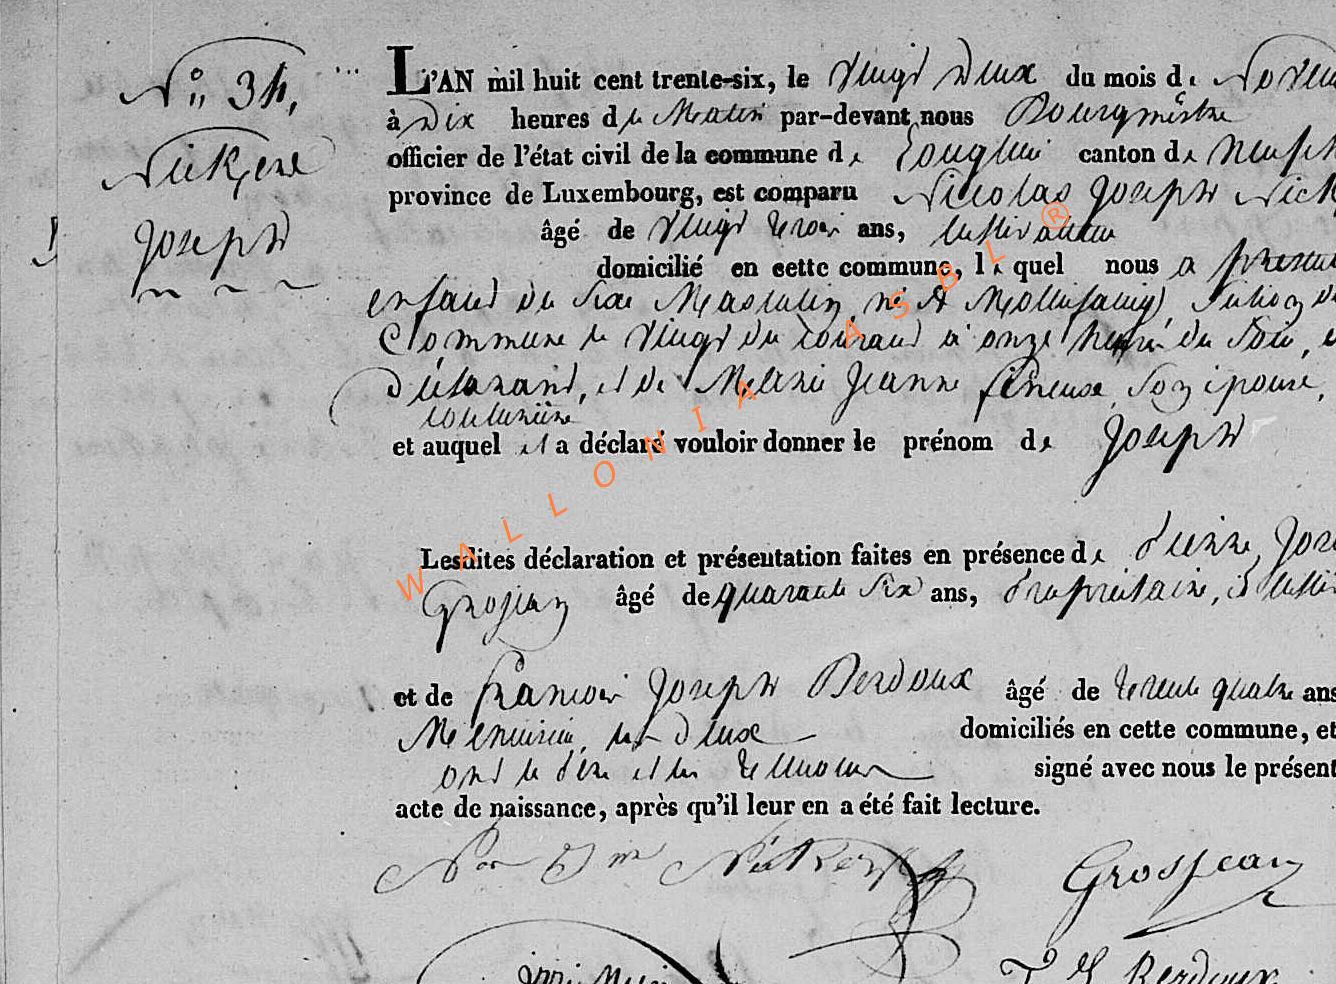 N° 34,
Nickers
Joseph
L'AN mil huit cent trente-six, le Vingt Deux du mois de Novem
à Dix heures du Matin par-devant nous Bourgmestre
officier de l'état civil de la commune de Longlier canton de Neufch
province de Luxembourg, est comparu Nicolas Joseph Nick
âgé de Vingt trois ans, Cultivateur
domicilié en cette commune, lequel nous a présenté
enfant du Sexe Masculin, né A Mollinfaing, Section de
Commune le Vingt du Courant à onze heures du Soir, 
Déclarant, et de Marie Jeanne Fineuse, Son épouse,
couturière
et auquel il a déclaré vouloir donner le prénom de Joseph
Lesdites déclaration et présentation faites en présence de Pierre Jose
Grosjean âgé de quarante Six ans, Propriétaire, et
et de François Joseph Berdoux âgé de trente quatre ans
Menuisier, les Deux domiciliés en cette commune, et
ont le Père et les témoins signé avec nous le présent
acte de naissance, après qu'il leur en a été fait lecture.
Grosjean
Berdoux
WALLONIA ASBL ®